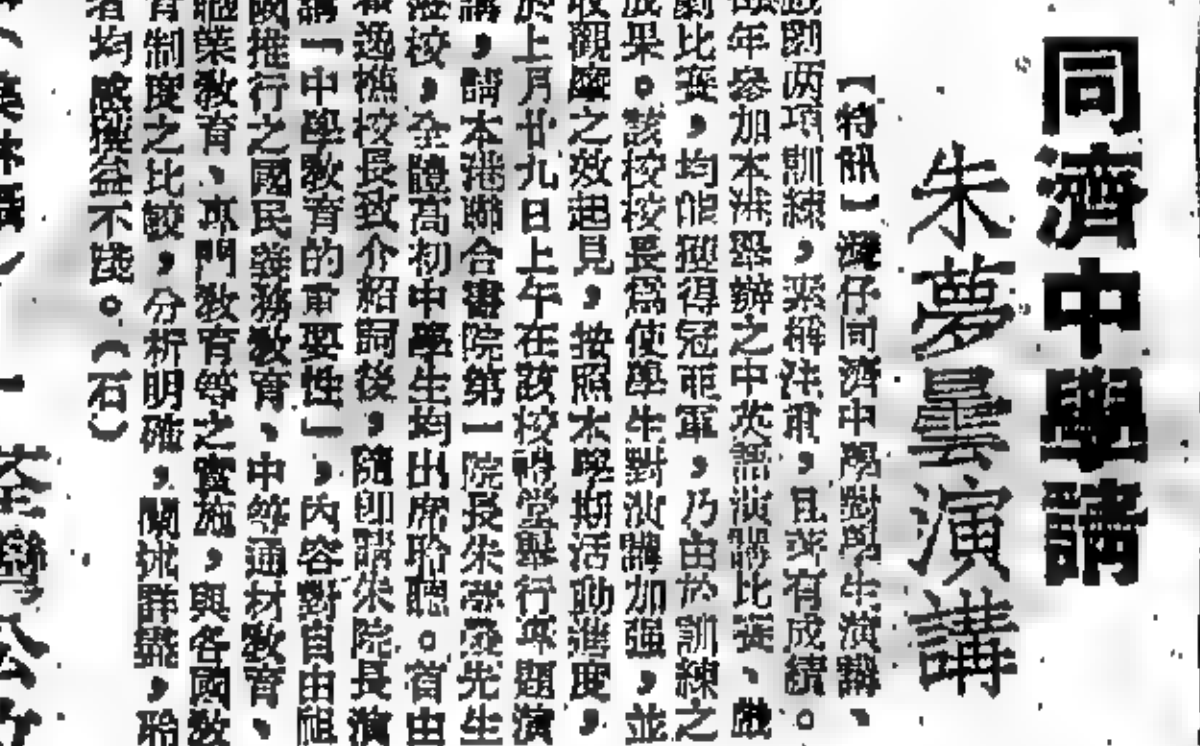 同濟中學請
朱夢曇演講
【特訊】灣仔同濟中學對學生演講、
戲劇两項訓練，素極注重，且著有成績。
年參加本港舉辦之中英語演講比賽、戲
劇比賽，均能獲得冠亞軍，乃由於訓練之
成果。該校校長爲使學生對演講加强，並
收觀摩之效起見，按照本學期活動進度，
於上月廿九日上午在該校禮堂舉行專題演
講，請本港聯合書院第一院長朱夢曇先生
蒞校，全體高初中學生均出席聆聽。首由
逸樵校長致介紹詞後，隨即請朱院長演
講「中學教育的重要性」，內容對自由祖
國推行之國民義務教育、中等通材教育、
職業教育、專門教育等之實施，與各國教
育制度之比較，分析明確，闡述詳盡，聆
者均感獲益不淺。（石）
荃灣公